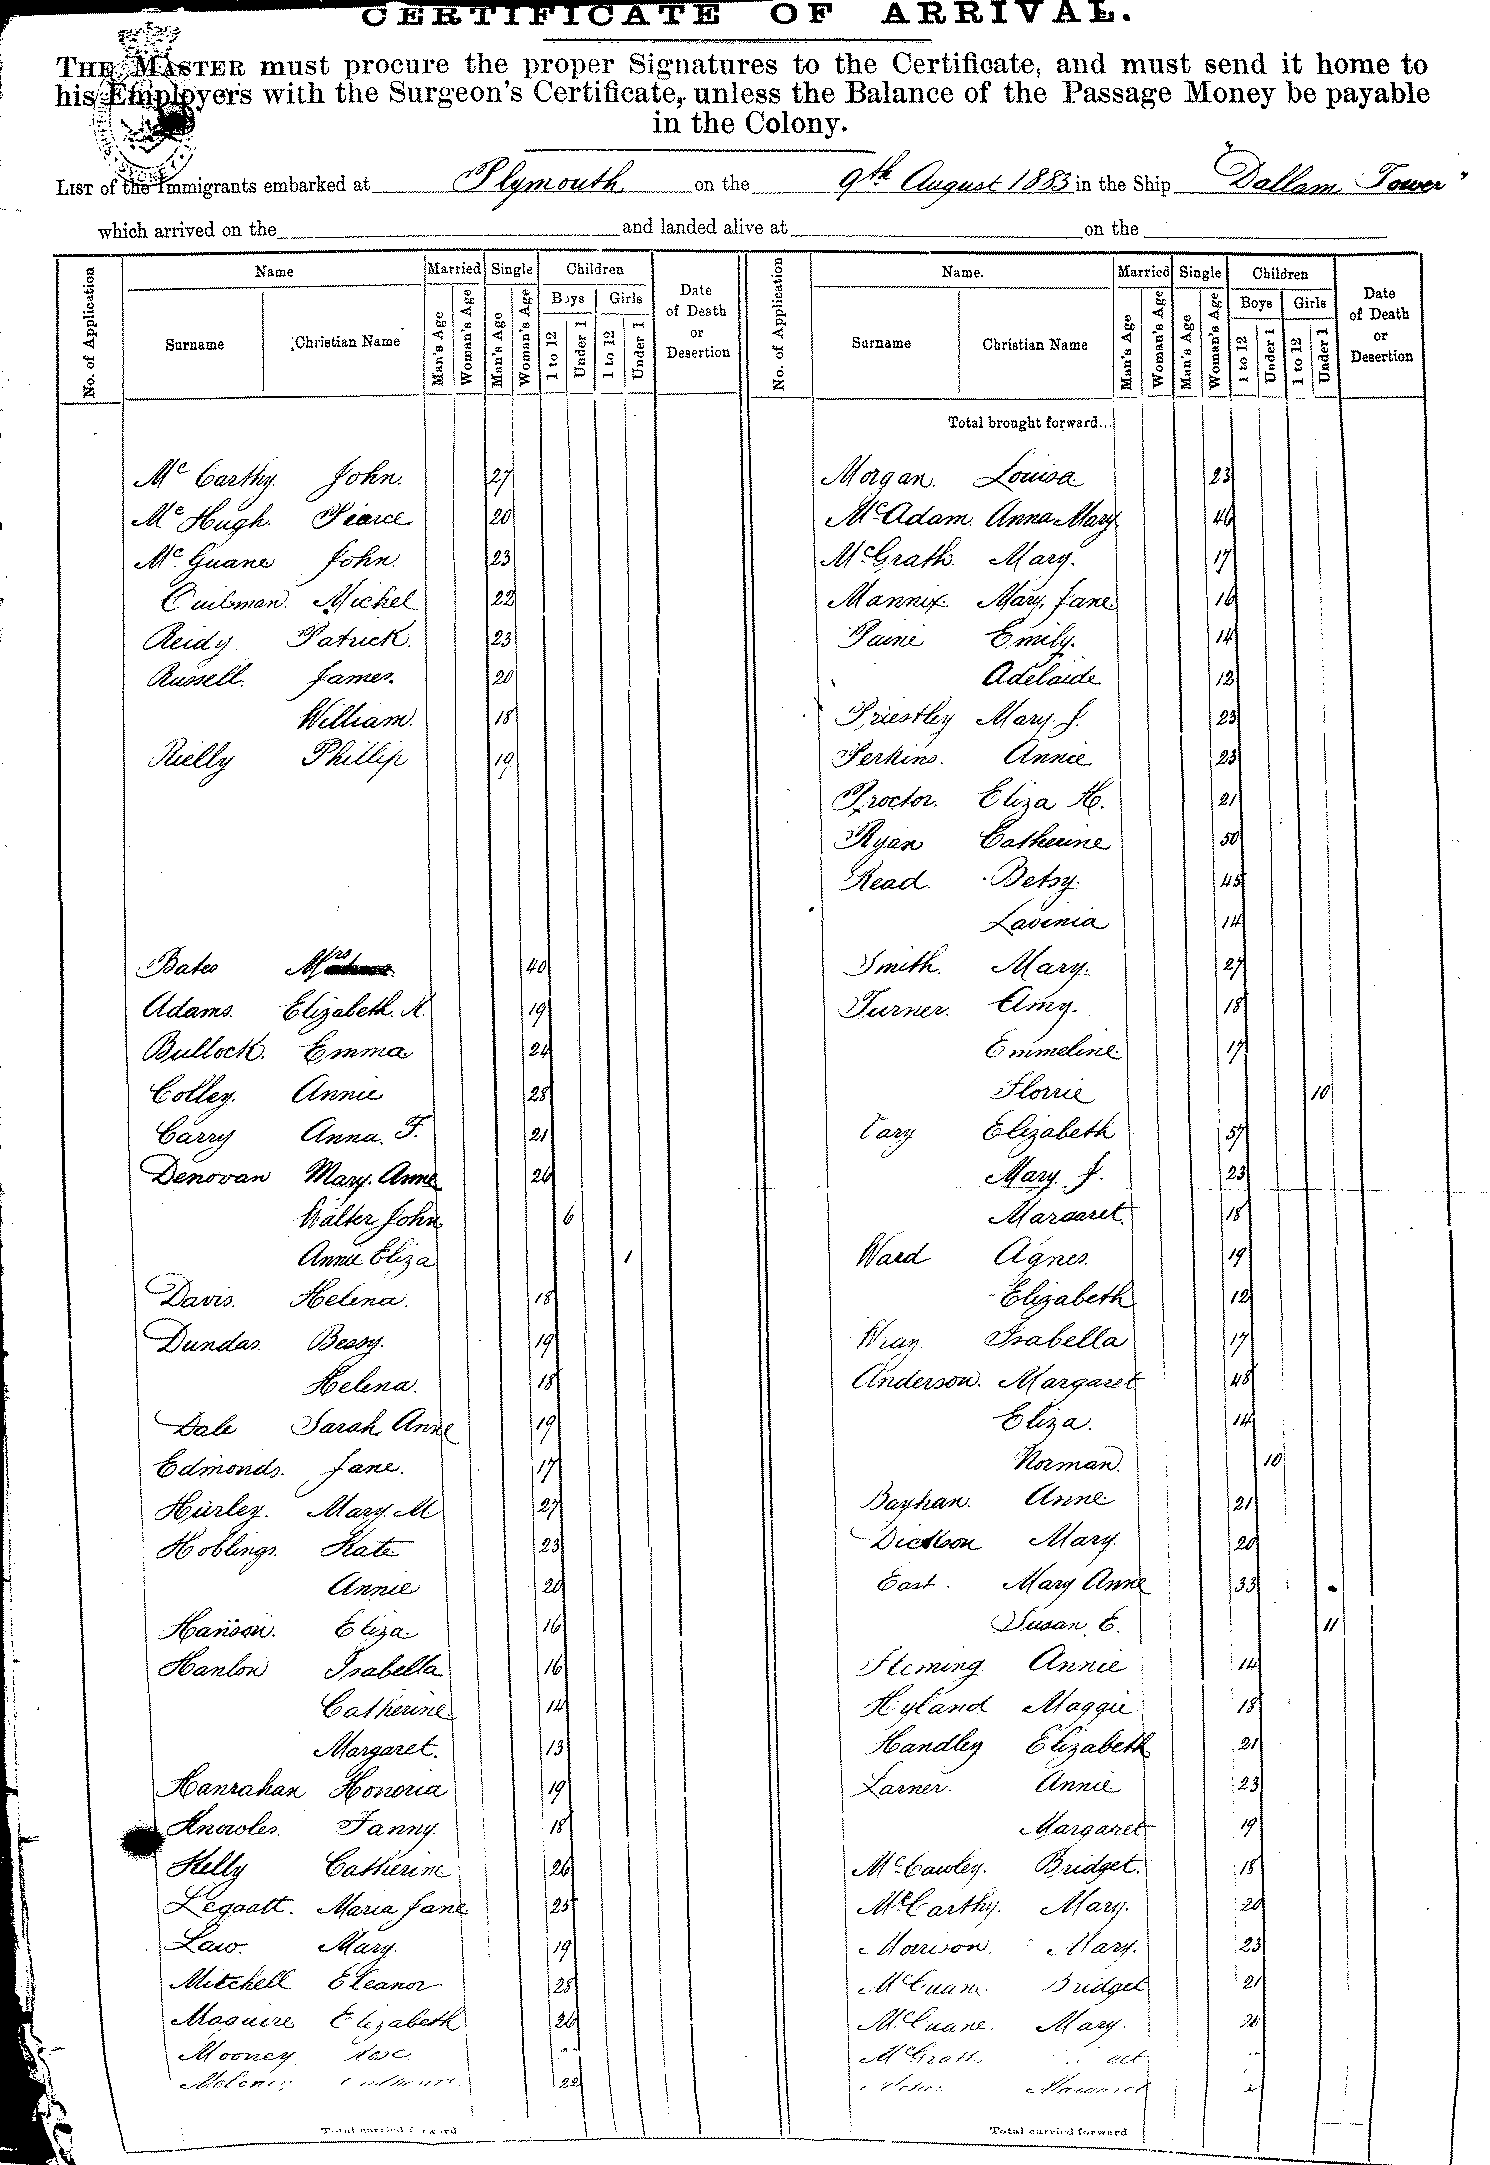 CERTIFICATE OF ARRIVAL.
THE MASTER must procure the proper Signatures to the Certificate, and must send it home to
his Employers with the Surgeon's Certificate, unless the Balance of the Passage Money be payable
in the Colony.
LIST of the Immigrants embarked at Plymouth on the 9th August 1883 in the Ship "Dallam Tower"
which arrived on the and landed alive at on the
No. of Application
Name
Married
Single
Children
Date of Death or Desertion
Surname
Christian Name
Man's Age
Woman's Age
Man's Age
Woman's Age
Boys
Girls
1 to 12
Under 1
1 to 12
Under 1
McCarthy John. 27
McHugh Pearce 20
McGuane John 23
Michel 22
Reidy Patrick. 23
Russell. James. 20
William. 18
Rielly Phillip 19
Bates Mrs 40
Adams. Elizabeth. 19
Bullock. Emma 24
Colley. Annie 28
Carry Anna. F. 21
Denovan Mary. Anne 26
Walter John 6
Annie Eliza 1
Davis. Helena. 18
Dundas. Bessy. 19
Helena. 18
Dale Sarah Anne 19
Edmonds. Jane. 17
Hurley. Mary. M 27
Hoblings. Kate 23
Annie 20
Hanson. Eliza 16
Hanlon Isabella 16
Catherine 14
Margaret. 13
Hanrahan Honoria 19
Knowles. Fanny 18
Kelly Catherine 26
Legoatt. Maria Jane 25
Law. Mary. 19
Mitchell Eleanor 28
Maguire Elizabeth 26
Mooney Rose
22
Total carried forward
No. of Application
Name.
Married
Single
Children
Date of Death or Desertion
Surname
Christian Name
Man's Age
Woman's Age
Man's Age
Woman's Age
Boys
Girls
1 to 12
Under 1
1 to 12
Under 1
Total brought forward...
Morgan. Louisa 23
McAdam. Anna Mary 46
McGrath. Mary. 17
Mannix Mary Jane 16
Paine Emily. 14
Adelaide 12
Priestley Mary J. 23
Perkins. Annie 23
Proctor. Eliza H. 21
Ryan Catherine 50
Read. Betsy. 45
Lavinia 14
Smith. Mary. 27
Turner. Amy. 18
Emmeline 17
Florrie 10
Elizabeth 57
Mary J. 23
Margaret. 18
Ward Agnes. 19
Elizabeth 12
Wray Isabella 17
Anderson. Margaret 48
Eliza. 14
Norman. 10
Bayhan. Anne 21
Dickson Mary. 20
East. Mary Anne 33
Susan. E. 11
Fleming Annie 14
Hyland Maggie 18
Handley Elizabeth 21
Larner. Annie 23
Margaret 19
McCawley. Bridget. 18
McCarthy. Mary. 20
Morrison. Mary. 23
McCuane. Bridget 21
McCuane. Mary.
McGrath
Total carried forward